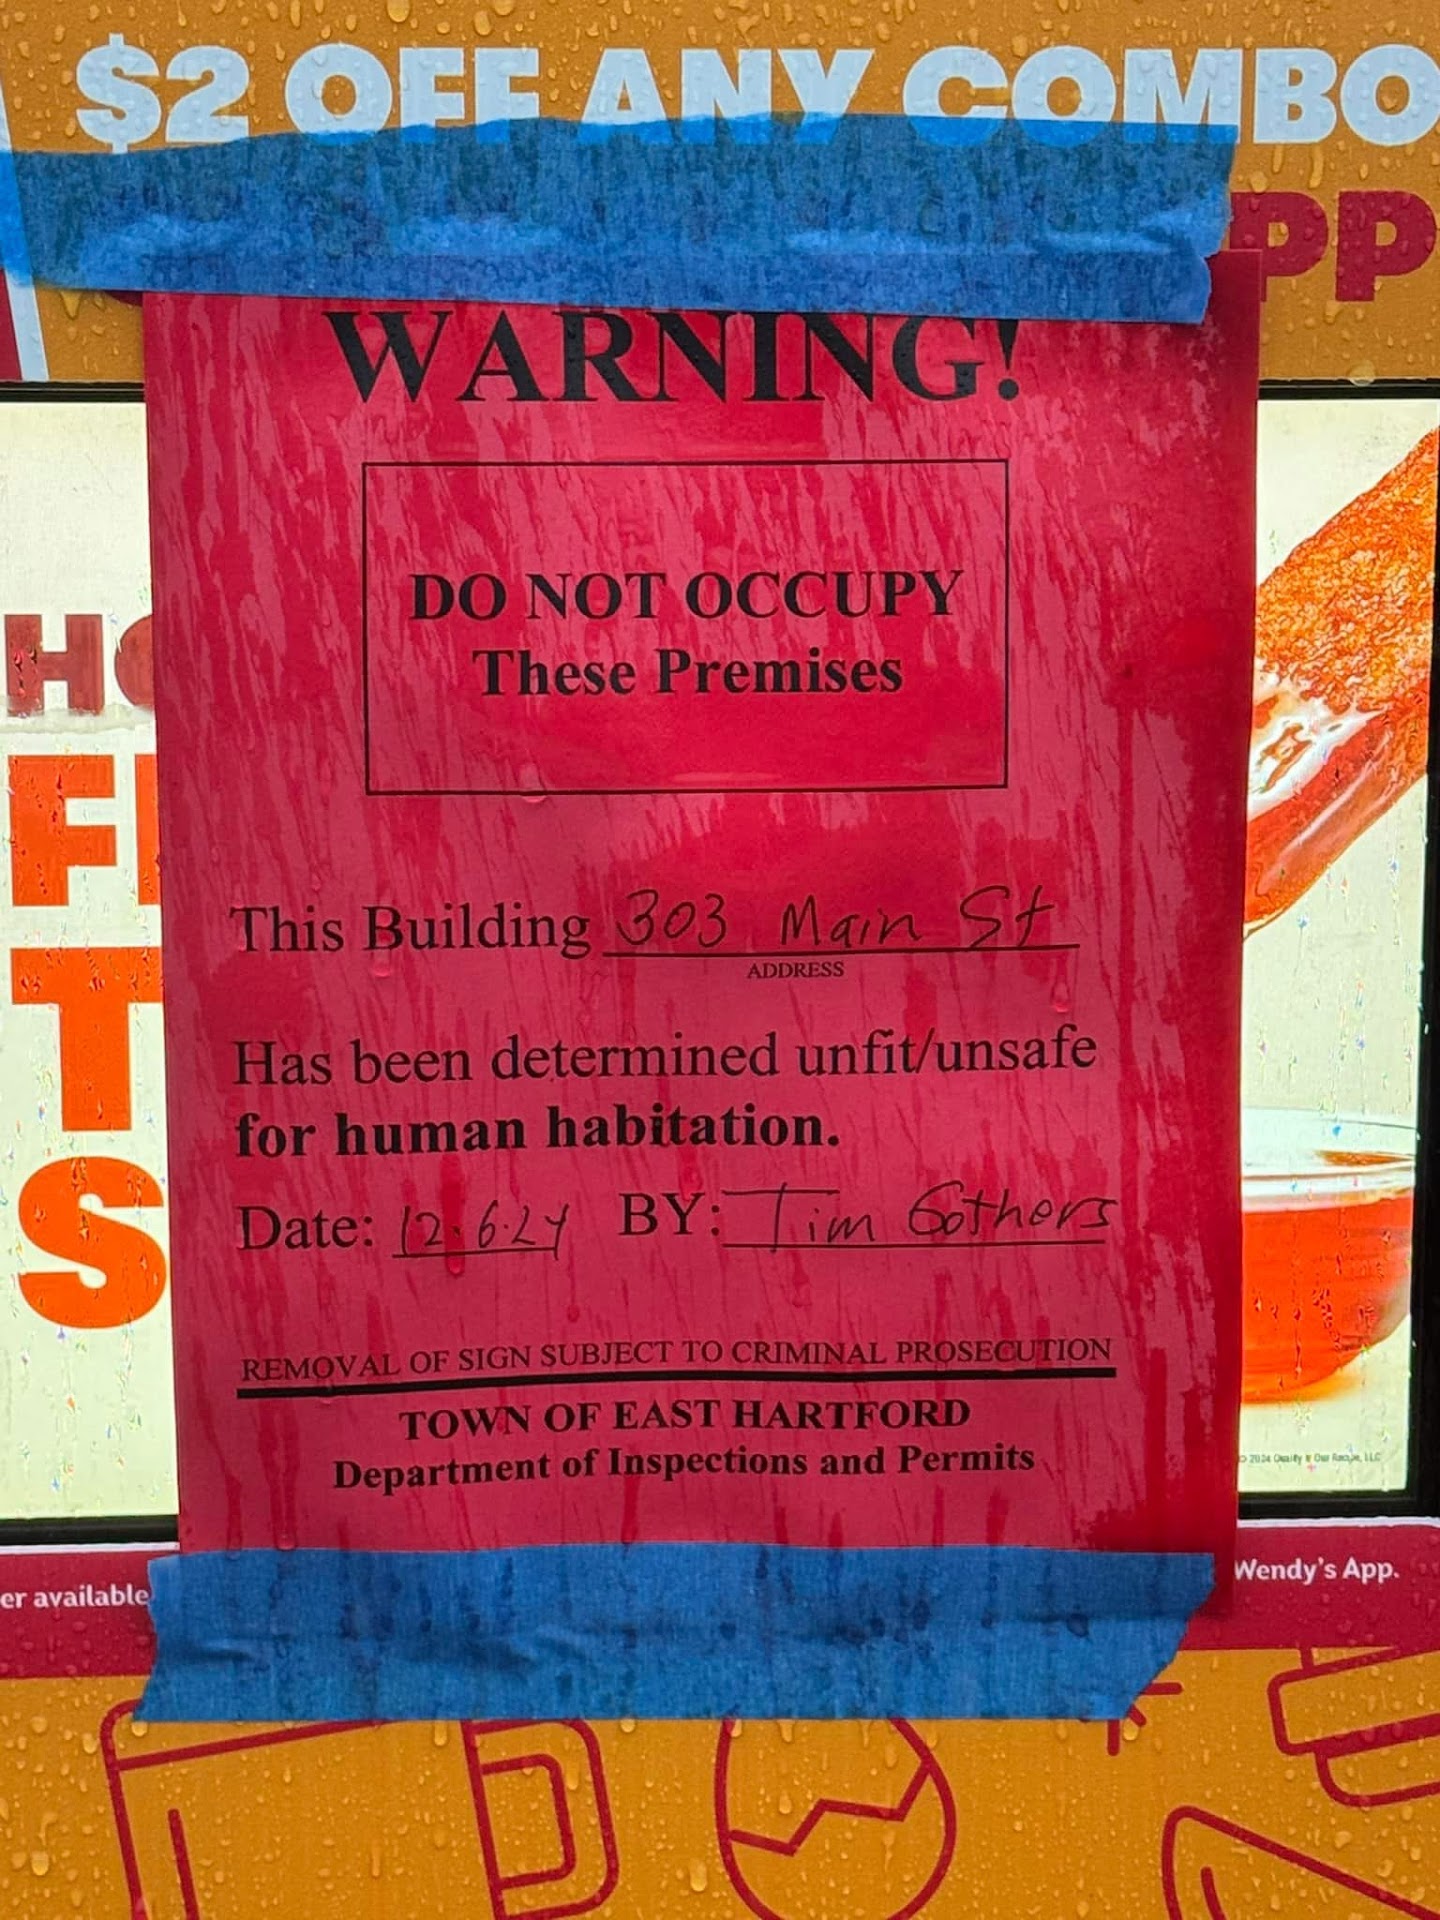 $2 OFF ANY COMBO
PP
WARNING!
DO NOT OCCUPY
These Premises
HO
F
T
S
This Building 303 Main St
ADDRESS
Has been determined unfit/unsafe
for human habitation.
Date: 12.6.24 BY: Tim Gothers
REMOVAL OF SIGN SUBJECT TO CRIMINAL PROSECUTION
TOWN OF EAST HARTFORD
Department of Inspections and Permits
© 2024 Quality Is Our Recipe, LLC
er available
Wendy's App.